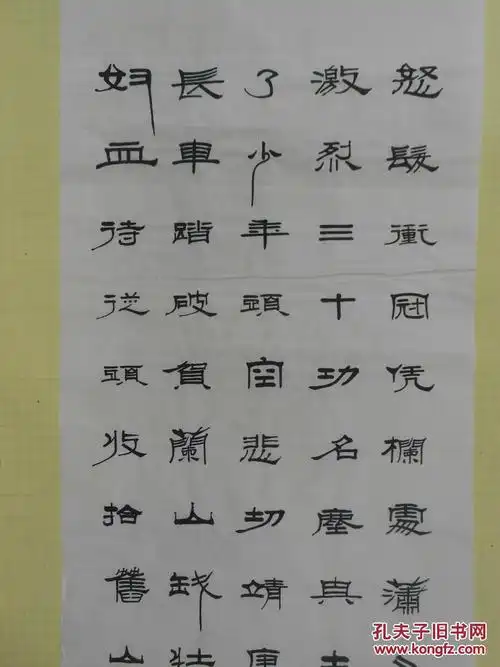 怒髮衝冠凭欄處瀟
激烈三十功名塵與土
了少年頭空悲切靖康
長車踏破賀蘭山缺壯
奴血待從頭收拾舊山
孔夫子旧书网
www.kongfz.com